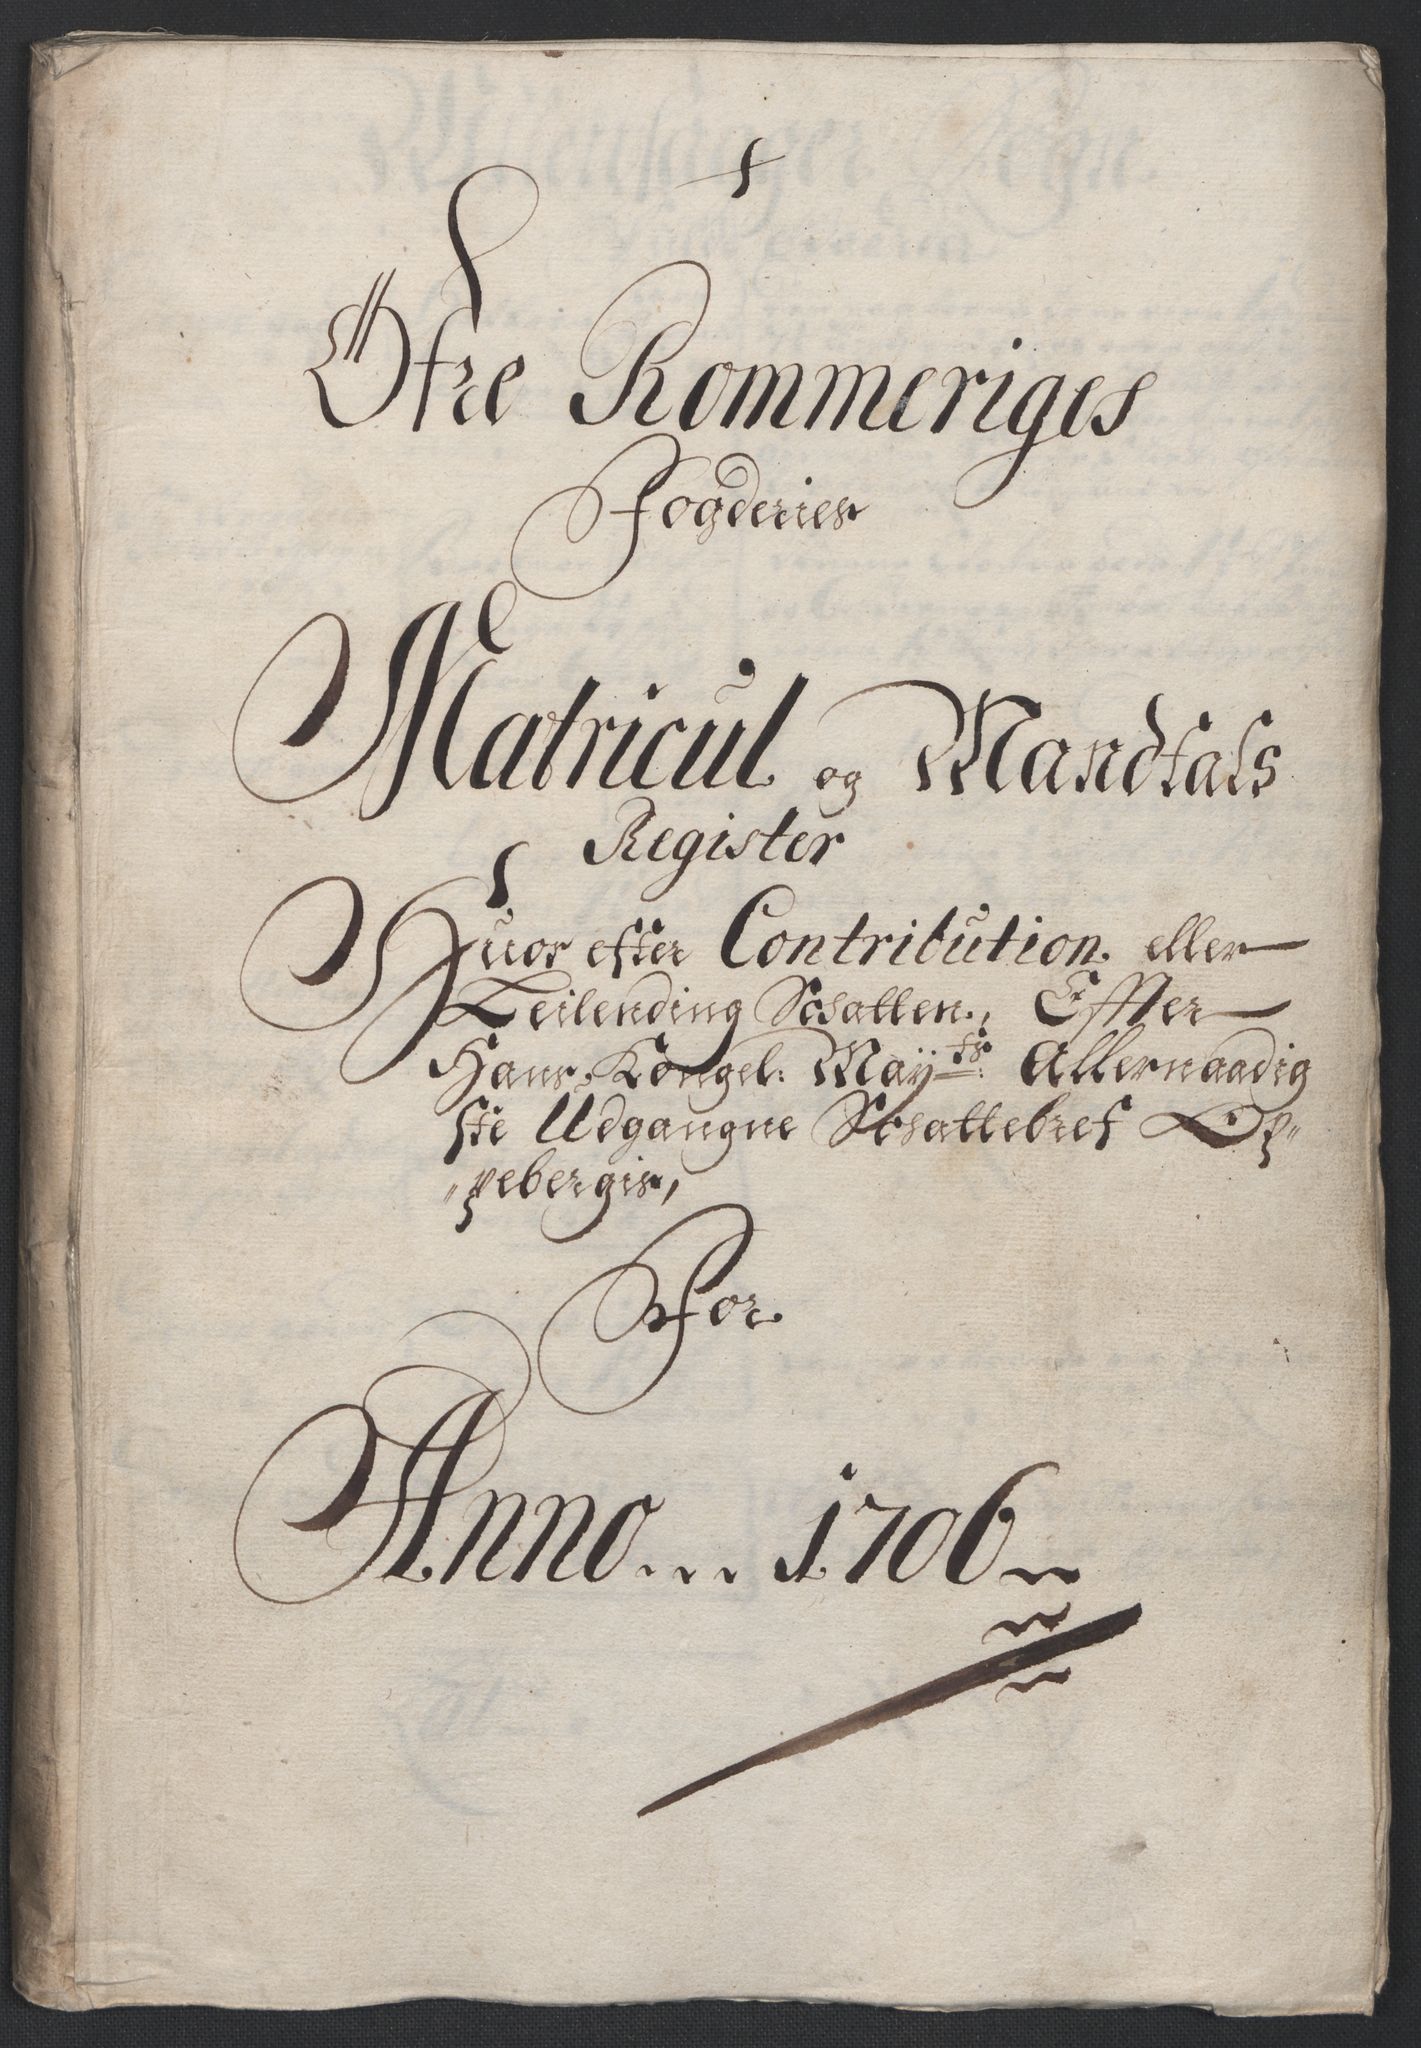 Öfre Rommeriges
Fogderies
Matricul og Mandtals
Register
Huor efter Contribution eller
Leilending Schatten, Effter
Hans Kongel: Mayts: Allernaadig
ste Udgangne Schattebref Op„
„pebergis,
For
Anno... 1706